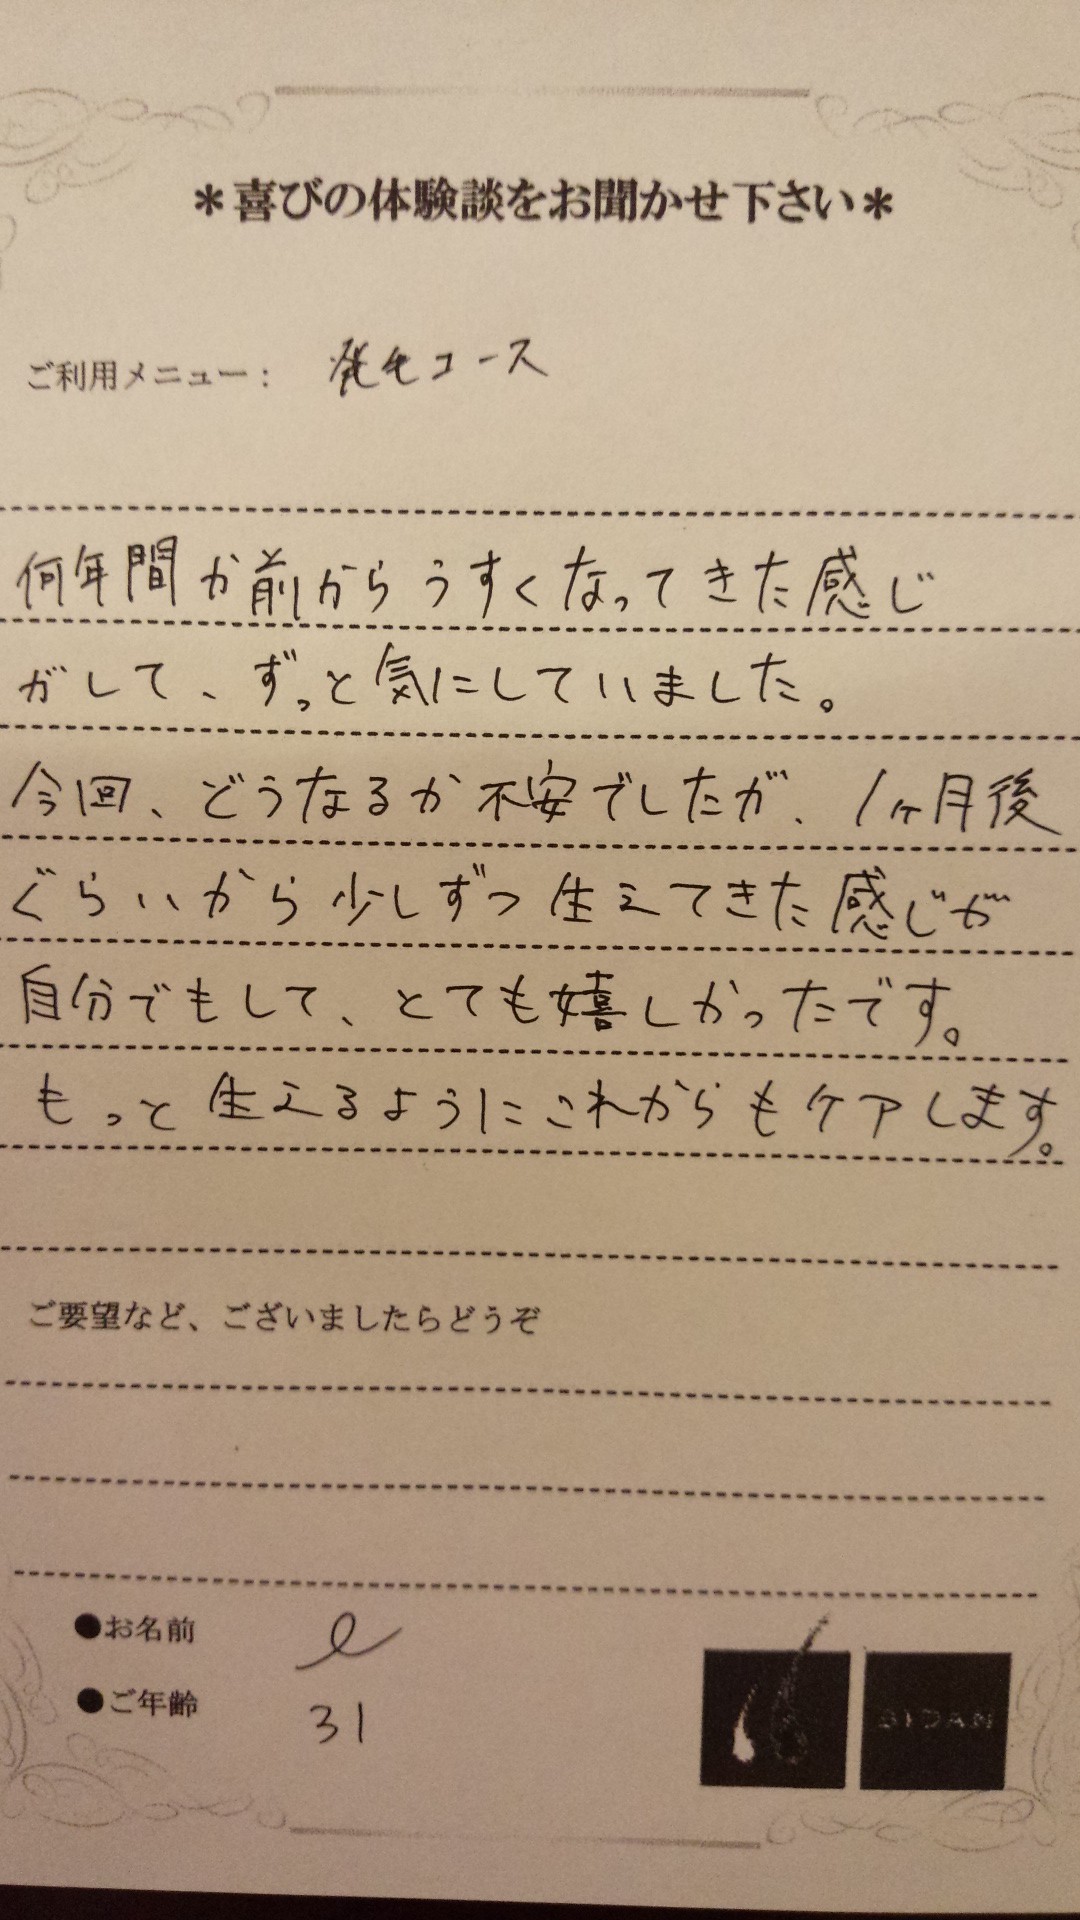 ＊喜びの体験談をお聞かせ下さい＊
ご利用メニュー： 発毛コース
何年間か前からうすくなってきた感じ
がして、ずっと気にしていました。
今回、どうなるか不安でしたが、1ヶ月後
ぐらいから少しずつ生えてきた感じが
自分でもして、とても嬉しかったです。
もっと生えるようにこれからもケアします。
ご要望など、ございましたらどうぞ
●お名前 e
●ご年齢 31
BIDAN